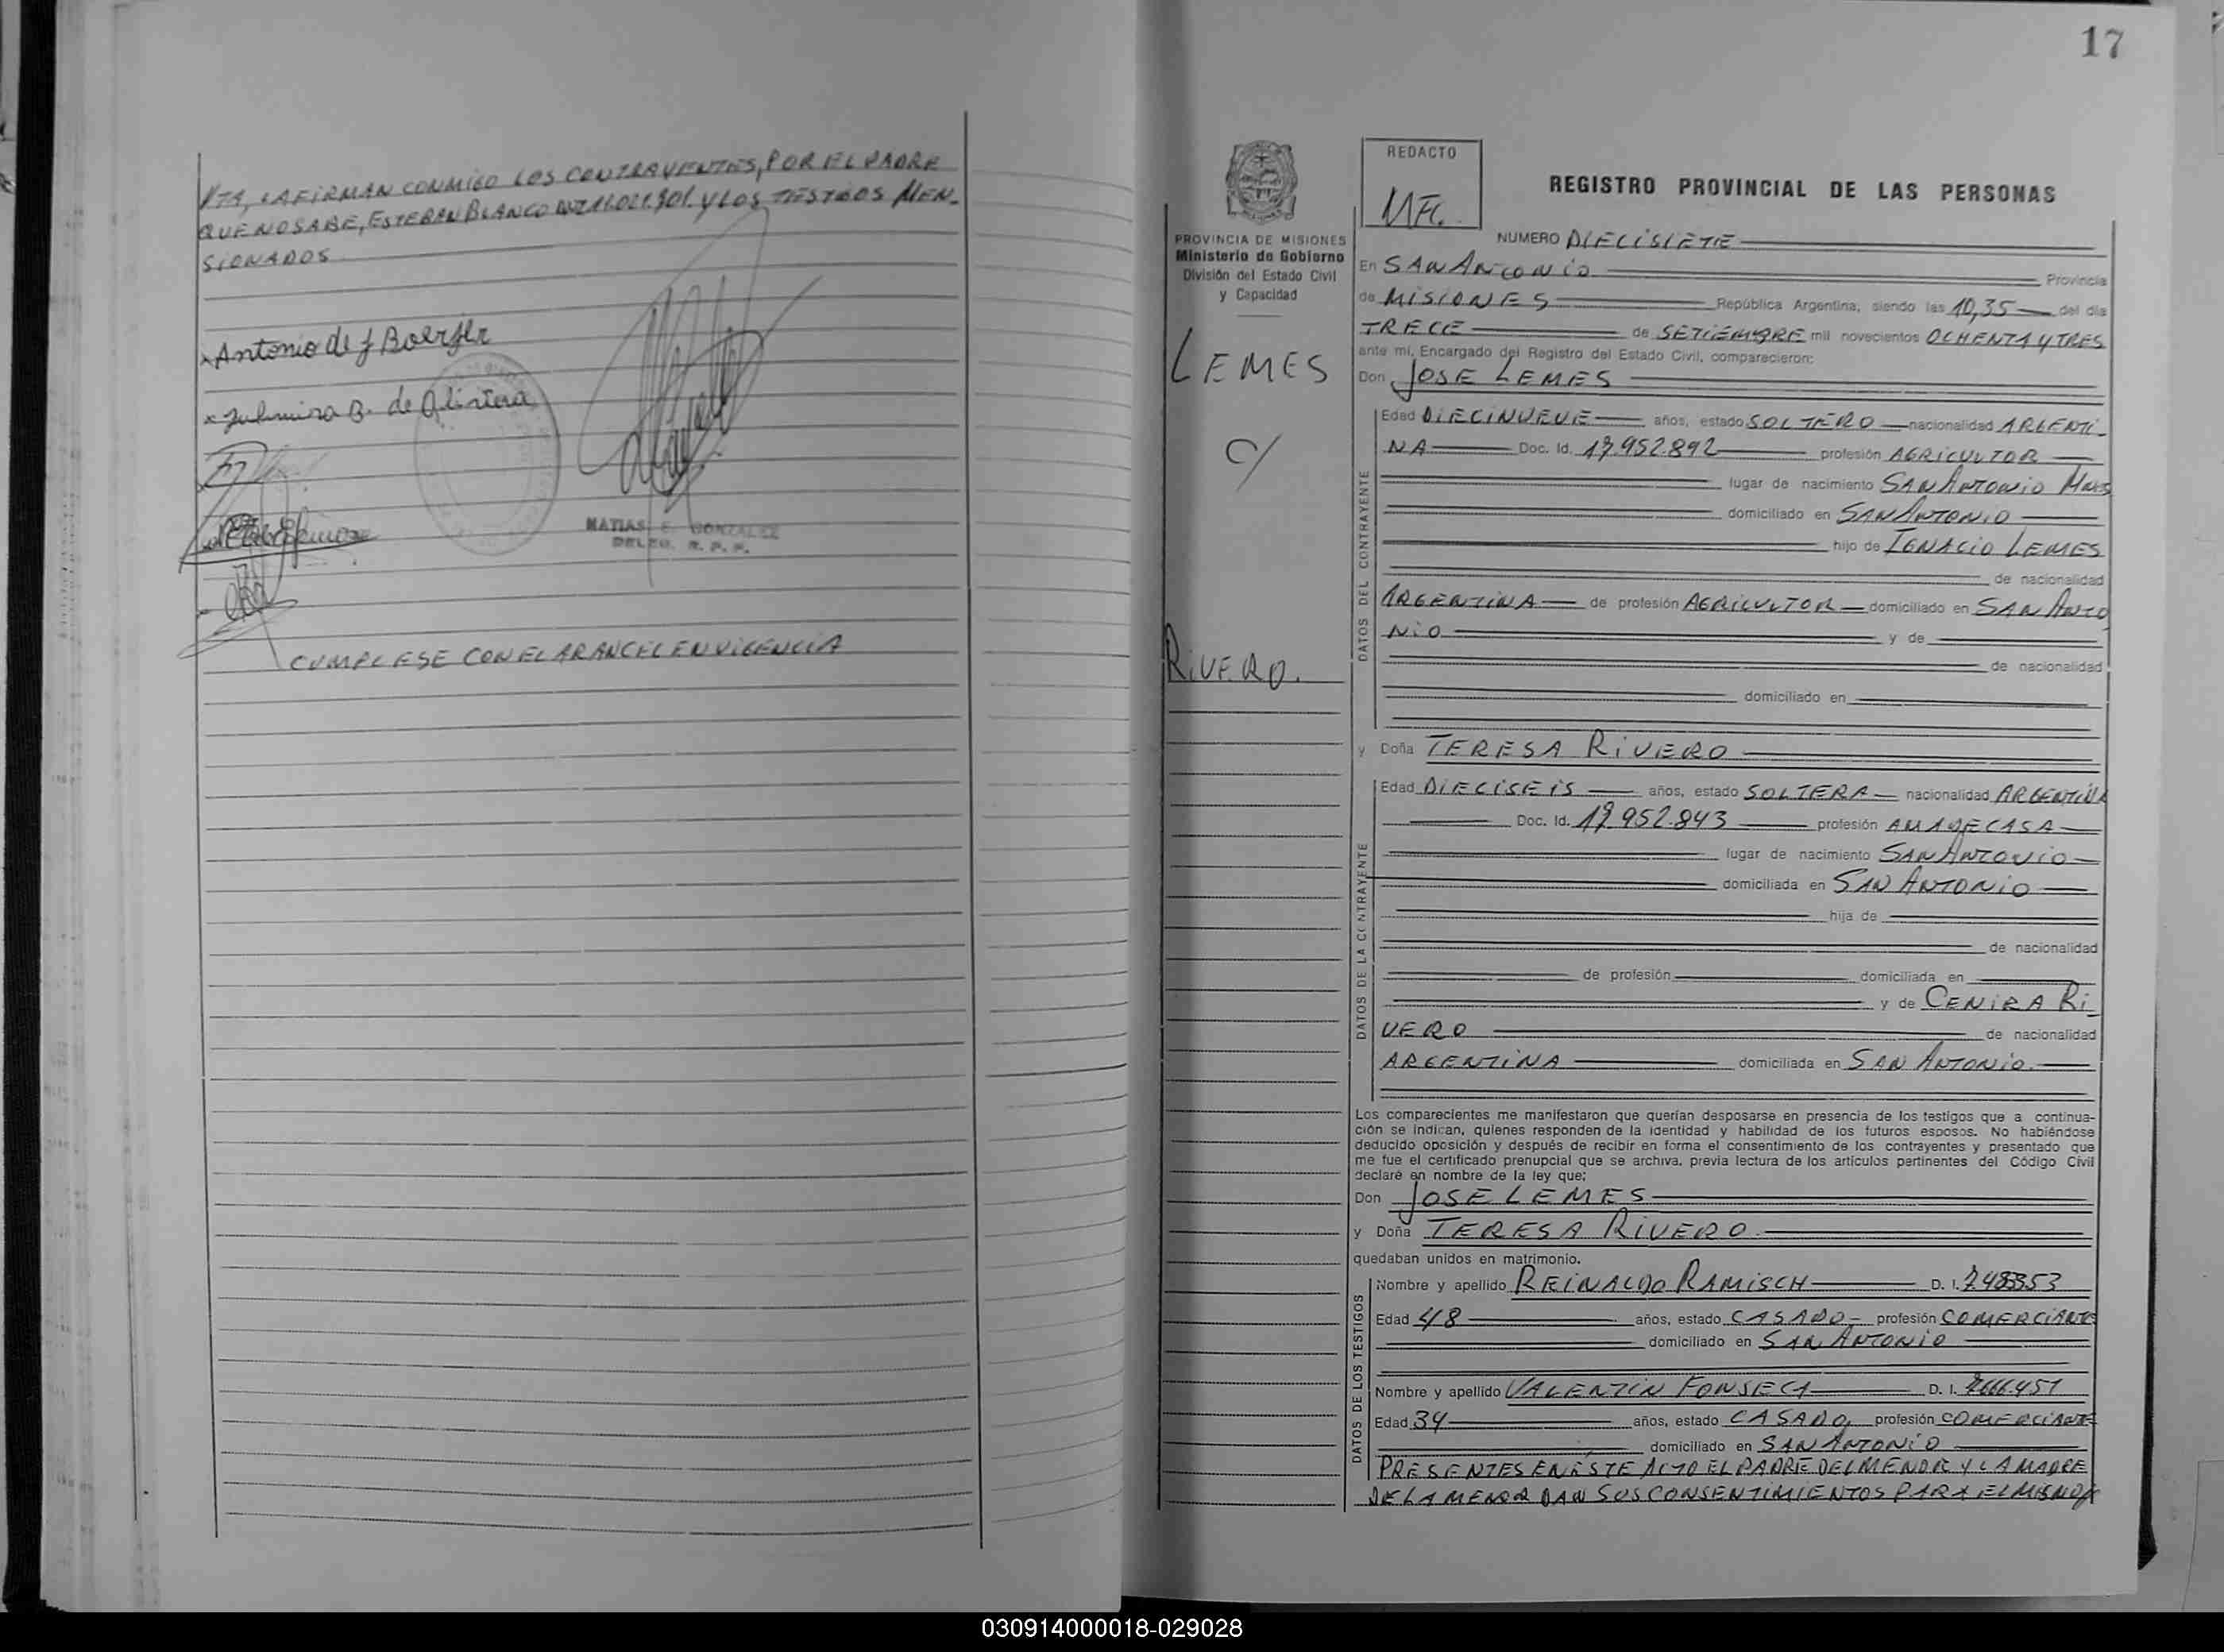 VTA, LAFIRMAN CONMIGO LOS CONTRAYENTES, POR EL PADRE
QUE NO SABE, ESTEBAN BLANCO Y LOS TESTIGOS MEN-
SIONADOS
Antonio de J Boerfler
B. de
MATIAS E. GONZALEZ
DELEG. R. P. P.
CUMPLESE CON EL ARANCEL EN VIGENCIA
17
REDACTO
REGISTRO PROVINCIAL DE LAS PERSONAS
PROVINCIA DE MISIONES
Ministerio de Gobierno
División del Estado Civil
y Capacidad
LEMES
C/
RIVERO.
NUMERO DIECISIETE
En SAN ANTONIO Provincia
de MISIONES República Argentina, siendo las 10,35 del día
TRECE de SETIEMBRE mil novecientos OCHENTA Y TRES
ante mí, Encargado del Registro del Estado Civil, comparecieron:
Don JOSE LEMES
DATOS DEL CONTRAYENTE
Edad DIECINUEVE años, estado SOLTERO nacionalidad ARGENTI-
NA Doc. Id. 17.952.892 profesión AGRICULTOR
lugar de nacimiento SAN ANTONIO Mnes
domiciliado en SAN ANTONIO
hijo de IGNACIO LEMES
de nacionalidad
ARGENTINA de profesión AGRICULTOR domiciliado en SAN ANTO
NIO y de
de nacionalidad
domiciliado en
y Doña TERESA RIVERO
DATOS DE LA CONTRAYENTE
Edad DIECISEIS años, estado SOLTERA nacionalidad ARGENTINA
Doc. Id. 17.952.843 profesión AMA DE CASA
lugar de nacimiento SAN ANTONIO
domiciliada en SAN ANTONIO
hija de
de nacionalidad
de profesión domiciliada en
y de CENIRA RI
VERO de nacionalidad
ARGENTINA domiciliada en SAN ANTONIO.
Los comparecientes me manifestaron que querían desposarse en presencia de los testigos que a continua-
ción se indican, quienes responden de la identidad y habilidad de los futuros esposos. No habiéndose
deducido oposición y después de recibir en forma el consentimiento de los contrayentes y presentado que
me fue el certificado prenupcial que se archiva, previa lectura de los artículos pertinentes del Código Civil
declaré en nombre de la ley que:
Don JOSE LEMES
y Doña TERESA RIVERO
quedaban unidos en matrimonio.
DATOS DE LOS TESTIGOS
Nombre y apellido REINALDO RAMISCH D. I.
Edad 48 años, estado CASADO profesión COMERCIANTE
domiciliado en SAN ANTONIO
Nombre y apellido VALENTIN FONSECA D. I. 7.666.451
Edad 34 años, estado CASADO profesión COMERCIANTE
domiciliado en SAN ANTONIO
PRESENTES EN ESTE ACTO EL PADRE DEL MENOR Y LA MADRE
DE LA MENOR DAN SUS CONSENTIMIENTOS PARA EL MISMO
030914000018-029028